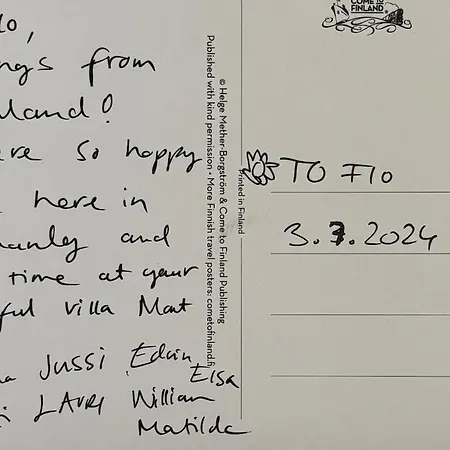 lo,
ngs from
nland!
ere so happy
here in
manly and
time at your
ful villa Mat
a Jussi Edvin
Elsa
i LAURI William
Matilda
© Helge Mether-Borgström & Come to Finland Publishing
Published with kind permission • More Finnish travel posters: cometofinland.fi
Printed in Finland
COME TO
FINLAND
TO Flo
3.7.2024